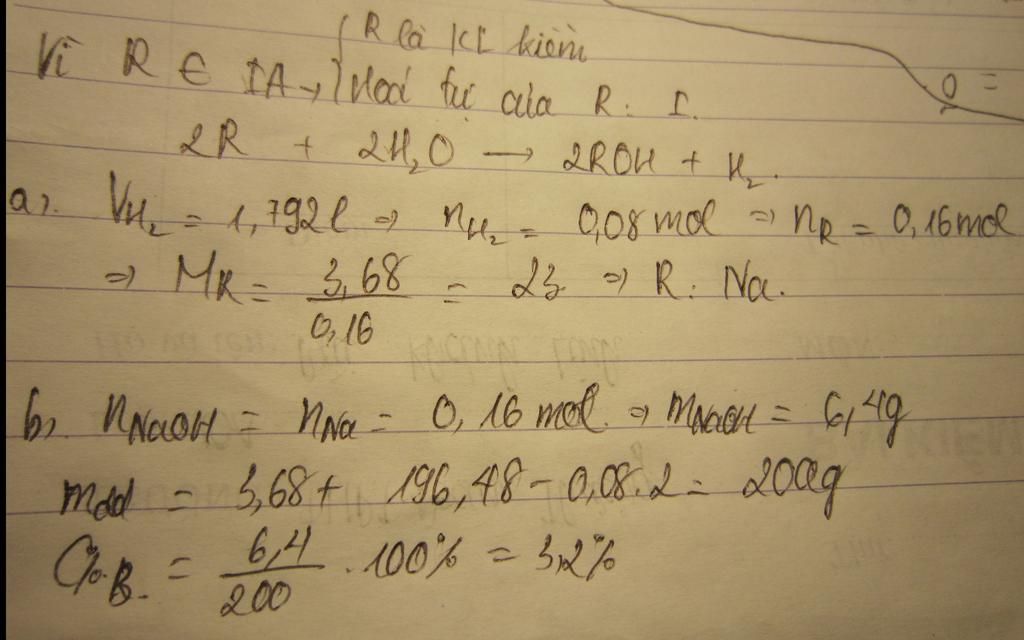 Vì R ∈ IA → { R là KL kiềm
Hoá trị của R: I.
2R + 2H₂O → 2ROH + H₂.
a). V_H₂ = 1,792l ⇒ n_H₂ = 0,08mol ⇒ n_R = 0,16mol
⇒ M_R = 3,68/0,16 = 23 ⇒ R: Na.
b), n_NaOH = n_Na = 0,16 mol. ⇒ m_NaOH = 6,4g
m_dd = 3,68 + 196,48 - 0,08.2 = 200g
C%_B. = 6,4/200 . 100% = 3,2%